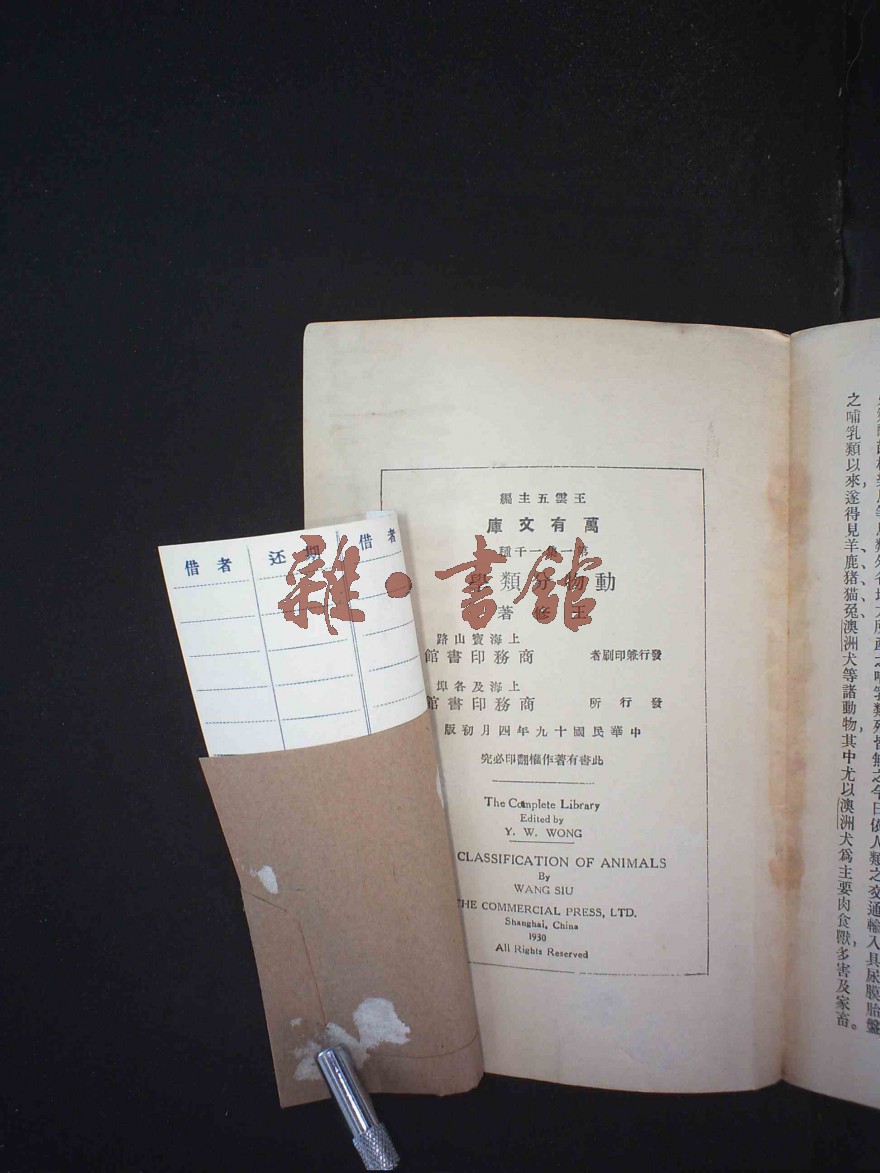 王雲五主編
萬有文庫
第一集一千種
動物分類學
王修著
上海寶山路
發行兼印刷者 商務印書館
上海及各埠
發行所 商務印書館
中華民國十九年四月初版
此書有著作權翻印必究
The Complete Library
Edited by
Y. W. WONG
CLASSIFICATION OF ANIMALS
By
WANG SIU
THE COMMERCIAL PRESS, LTD.
Shanghai, China
1930
All Rights Reserved
借者 还期 借者
雜·書館
人類之交通輸入具尿膜胎盤
之哺乳類以來，遂得見羊、鹿、猪、猫、兔、澳洲犬等諸動物，其中尤以澳洲犬爲主要肉食獸，多害及家畜。